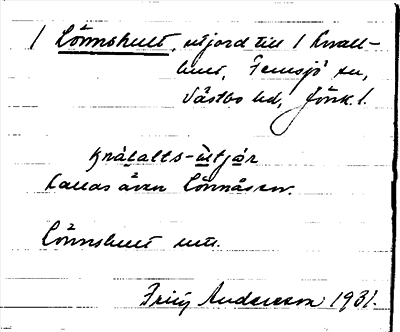 1 Lönnshult, utjord till 1 Knall-
hult, Femsjö sn,
Västbo hd, Jönk. l.
knälalts-ùtjơr
Kallas även Lönnåsen.
Lönnshult utj.
Frity Anderson 1931.